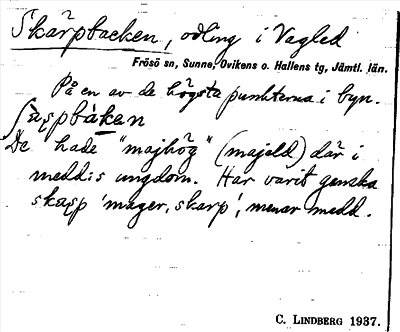 Skärpbacken, odling i Vagled
Frösö sn, Sunne, Ovikens o. Hallens tg, Jämtl. län.
På en av de högsta punkterna i byn.
De hade "majhög" (majeld) där i
medd:s ungdom. Har varit ganska
skarp 'mager, skarp', menar medd.
C. LINDBERG 1937.